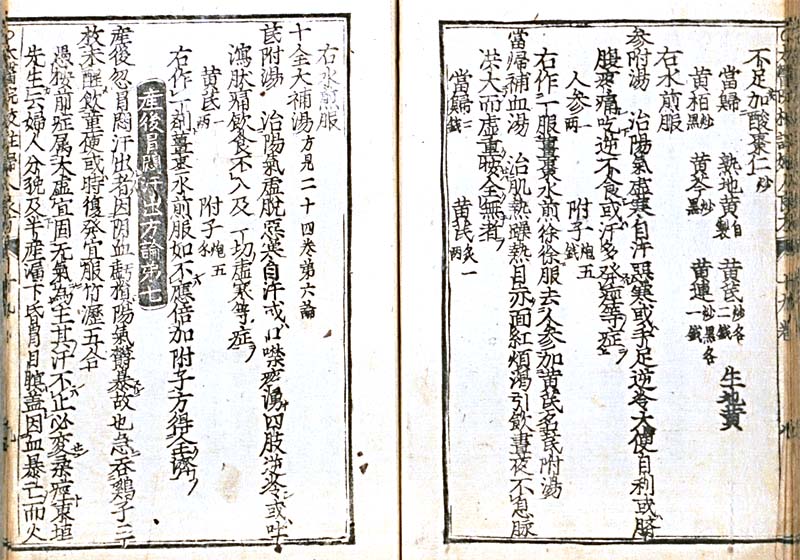 不足加酸棗仁炒
當歸 熟地黄自製 黄芪炒各二錢 生地黄
黄柏炒黑 黄芩炒黑 黄連炒黑各一錢
右水煎服
参附湯 治陽氣虚寒自汗惡寒或手足逆冷大便自利或臍
腹疼痛吃逆不食或汗多發痙等症
人参一兩 附子炮五錢
右作一服薑棗水煎徐徐服去人参加黄芪名芪附湯
當歸補血湯 治肌熱躁熱目赤面紅煩渴引飲晝夜不息脉
洪大而虚重按全無者
當歸二錢 黄芪炙一兩
右水煎服
十全大補湯方見二十四卷第六論
芪附湯 治陽氣虚脱惡寒自汗或口噤痰湧四肢逆冷或吐
瀉腹痛飲食不入及一切虚寒等症
黄芪一兩 附子炮五
右作一劑薑棗水煎服如不應倍加附子方得全濟
產後冒悶汗出方論第七
產後忽冒悶汗出者因陰血虧損陽氣鬱暴故也急吞鷄子二丁
故未醒飲童便或時復發宜服竹瀝五合
愚按前症属大虚宜固元氣為主其汗不止必變柔痙東垣
先生云婦人分娩及半產漏下昏冒目瞑蓋因血暴亡而火